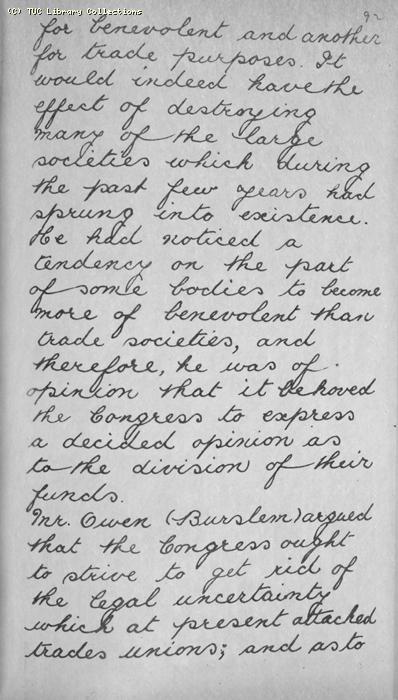 (C) TUC Library Collections
92
for benevolent and another
for trade purposes. It
would indeed have the
effect of destroying
many of the large
societies which during
the past few years had
sprung into existence.
He had noticed a
tendency on the part
of some bodies to become
more of benevolent than
trade societies, and
therefore, he was of
opinion that it behoved
the Congress to express
a decided opinion as
to the division of their
funds.
Mr. Owen (Burslem) argued
that the Congress ought
to strive to get rid of
the legal uncertainty
which at present attached
trades unions; and as to